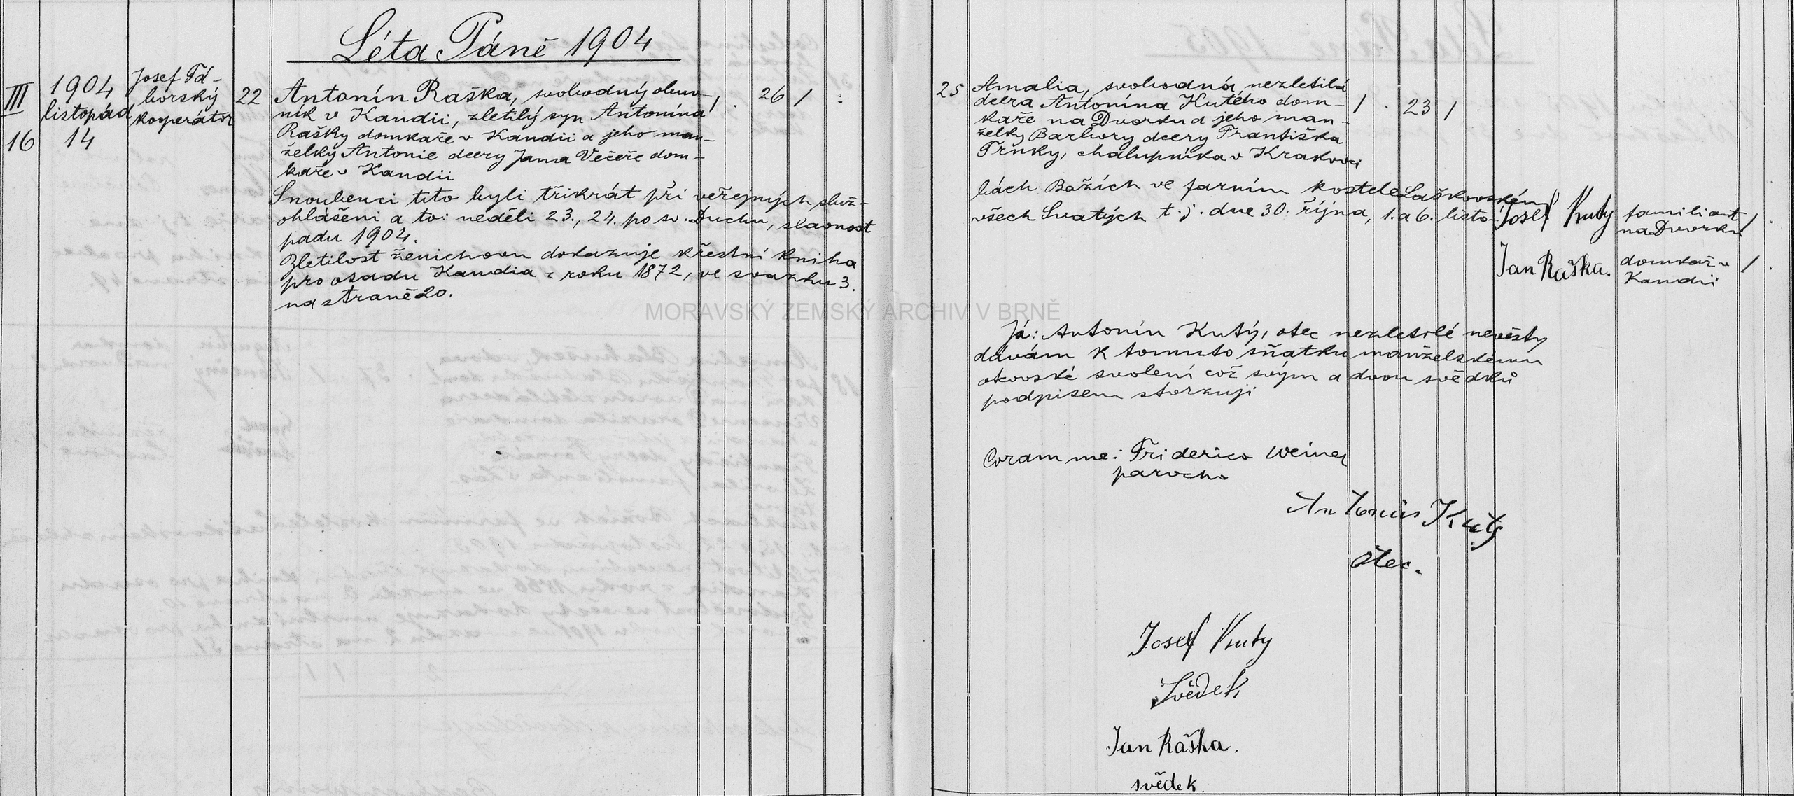 Léta Páně 1904
III
16
1904
listopád
14
Josef Tá-
borský
kooperátor
22
Antonín Raška, svobodný obuv-
ník v Kandii, zletilý syn Antonína
Rašky domkaře v Kandii a jeho man-
želky Antonie dcery Jana Večeře dom-
kaře v Kandii
26
Snoubenci tito byli třikrát při veřejných služ-
ohlášeni a to: neděli 23., 24. po sv. Duchu, slavnost
padu 1904.
Zletilost ženichovu dokazuje křestní kniha
pro osadu Kandia z roku 1872, ve svazku 3.
na straně 20.
25
Amalia, svobodná, nezletilá
dcera Antonína Kutého dom-
kaře na Dvorku a jeho man-
želky Barbory dcery Františka
Trnky, chalupníka v Krakovci
23
bách Božích ve farním kostele Laškovském
všech Svatých t. j. dne 30. října, 1. a 6. listo-
Josef Kuty
familiant
na Dvorku
Jan Raška.
domkař v
Kandii
MORAVSKÝ ZEMSKÝ ARCHIV V BRNĚ
Já: Antonín Kutý, otec nezletilé nevěsty
dávám k tomuto sňatku manželskému
otcovské svolení což svým a dvou svědků
podpisem stvrzuji
Coram me: Friderico Weiner
parocho
Kutý
Otec.
Josef Kuty
Svědek
Jan Raška.
svědek